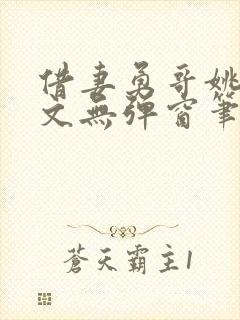 借妻勇哥姚
文無彈窗筆
蒼天霸主1